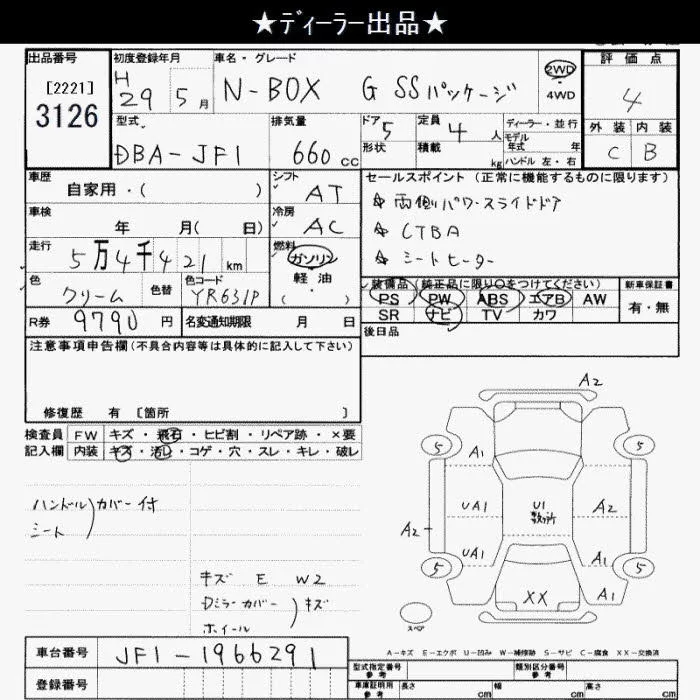 ★ディーラー出品★
出品番号
[2221]
3126
初度登録年月
H 29 5月
車名・グレード
N-BOX G SSパッケージ
2WD
・
4WD
評価点
4
外装 内装
C B
型式
DBA-JF1
排気量
660 cc
ドア 5
形状
定員 4 人
積載 kg
ディーラー・並行
モデル
年式 年
ハンドル 左・右
車歴
自家用・( )
シフト
AT
車検
年 月( 日)
冷房
AC
走行
5万4千421km
燃料
ガソリン
軽油
( ・ )
色
クリーム
色替
色コード
YR631P
R券 9790円
名変通知期限 月 日
セールスポイント (正常に機能するものに限ります)
☆ 両側パワースライドドア
☆ CTBA
☆ シートヒーター
装備品 (純正品に限り○をつけてください)
PS PW ABS エアB AW
SR ナビ TV カワ
新車保証書
有・無
後日品
注意事項申告欄(不具合内容等は具体的に記入して下さい)
修復歴 有 〔箇所 〕
検査員
記入欄
FW キズ・飛石・ヒビ割・リペア跡・×要
内装 キズ・汚レ・コゲ・穴・スレ・キレ・破レ
ハンドル)カバー付
シート
キズ E W2
Dミラーカバー)キズ
ホイール
A2
5 5
A1
UA1 U1 A2
数ヶ所
A2
UA1 A1
5 5
XX A1
スペア
A-キズ E-エクボ U-凹み W-補修跡 S-サビ C-腐食 XX-交換済
車台番号 JF1-1966291
登録番号
型式指定番号
参考
類別区分番号
参考
車庫証明用
参考
長さ cm 幅 cm 高さ cm